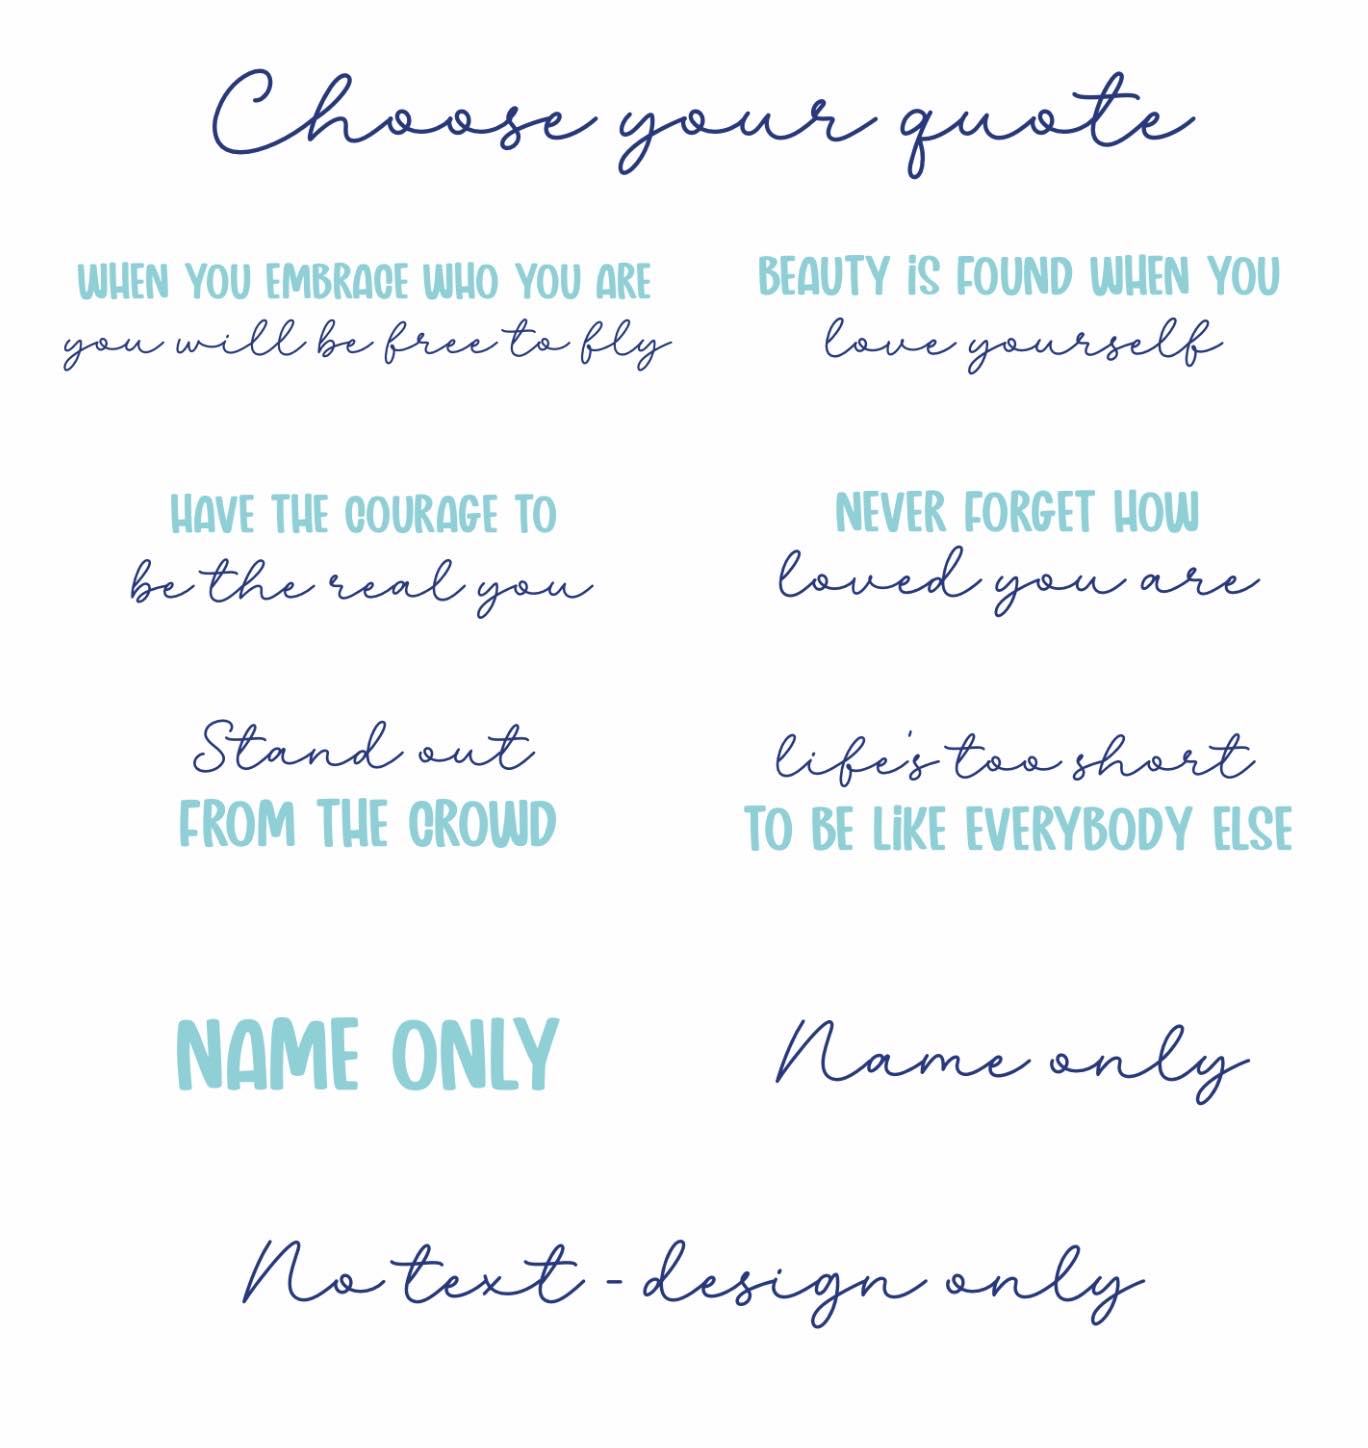 Choose your quote
WHEN YOU EMBRACE WHO YOU ARE
you will be free to fly
BEAUTY iS FOUND WHEN YOU
love yourself
HAVE THE COURAGE TO
be the real you
NEVER FORGET HOW
loved you are
Stand out
FROM THE CROWD
life's too short
TO BE LiKE EVERYBODY ELSE
NAME ONLY
Name only
No text - design only